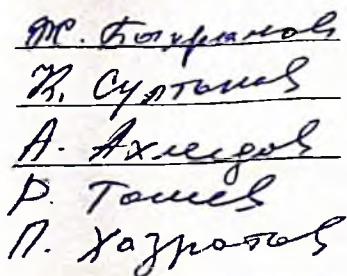 Ж. Бекжанов
К. Султанов
А. Ахмедов
Р. Тошев
П. Хазратов